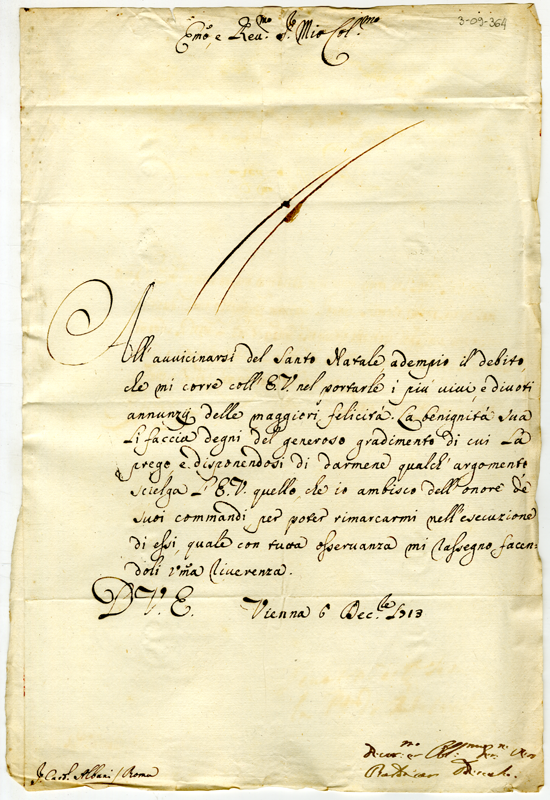 3-09-364
Emo, e Reu.mo Sr. Mio Col.mo
All' auuicinarsi del Santo Natale adempio il debito,
che mi corre coll' E.V. nel portarle i più viui, e diuoti
annunzÿ delle maggiori felicità. La benignità Sua
li faccia degni del generoso gradimento di cui La
prego e disponendosi di darmene qualch' argomento
scielga L' E.V. quello, che io ambisco dell' onore de'
suoi commandi per poter rimarcarmi nell' esecuzione
di essi, quale con tutta osseruanza mi rassegno facen-
doli vma riuerenza.
D V. E. Vienna 6 Dec.bre 1713
Sr. Card. Albani / Roma